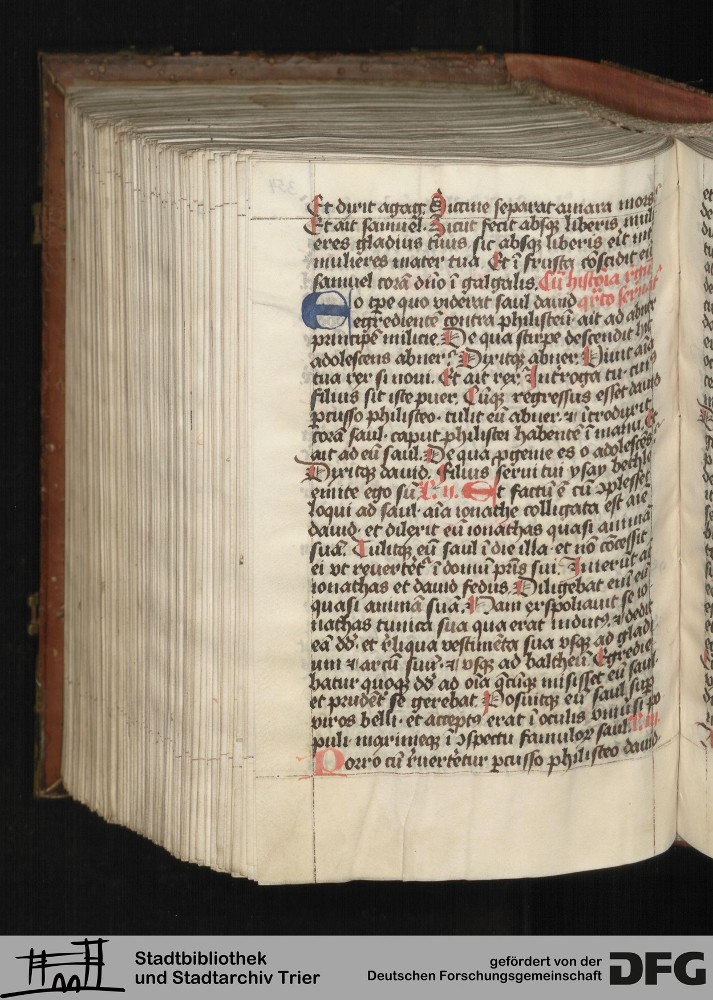 Et dixit agag. Siccine separat amara mors
Et ait samuel. Sicut fecit absq; liberis muli
eres gladius tuus sic absq; liberis erit int
mulieres mater tua. Et i frusta coscidit eu
samuel cora dno i galgalis. Cu historia
Eo tpe quo viderat saul dauid
egrediente contra philisteu ait ad abner
principe milicie. De qua stirpe descendit hic
adolescens abner? Dixitq; abner. Viuit aia
tua rex si noui. Et ait rex. Introga tu cui9
filius sit iste puer. Cuq; regressus esset dauid
pcusso philisteo tulit eu abner et itroduxit
cora saul caput philistei habente i manu. Et
ait ad eu saul. De qua pgenie es o adolescens
Dixitq; dauid. Filius serui tui ysay bethle
emite ego su. C. ii. Et factu e cu oplesset
loqui ad saul aia ionathe colligata est aie
dauid et dilexit eu ionathas quasi anima
sua. Tulitq; eu saul i die illa et no cocessit
ei vt reuerteret i domu pris sui. Inierut at
ionathas et dauid fedus. Diligebat eni eu
quasi anima sua. Nam expoliauit se io
nathas tunica sua qua erat indut9 et dedit
ea dd et reliqua vestimeta sua vsq; ad gladi
um et arcu suu et vsq; ad baltheu. Egredie
batur quoq; dd ad oia qcuq; misisset eu saul
et prudent se gerebat. Posuitq; eu saul sup
viros belli et accept9 erat i oculis vniusi po
puli maximeq; i ospectu famulor saul.
Porro cu reuertetur pcusso philisteo dauid
Stadtbibliothek
und Stadtarchiv Trier
gefördert von der
Deutschen Forschungsgemeinschaft
DFG